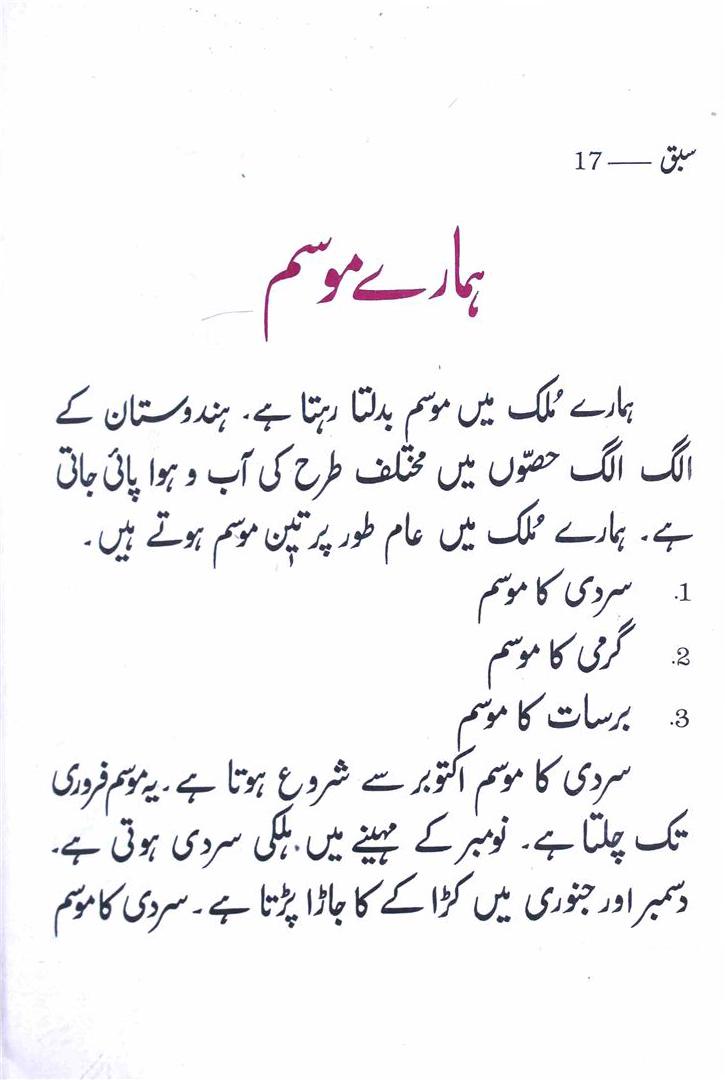 سبق — 17
ہمارے موسم
ہمارے مُلک میں موسم بدلتا رہتا ہے۔ ہندوستان کے
الگ الگ حصّوں میں مختلف طرح کی آب و ہوا پائی جاتی
ہے۔ ہمارے مُلک میں عام طور پر تین موسم ہوتے ہیں۔
1. سردی کا موسم
2. گرمی کا موسم
3. برسات کا موسم
سردی کا موسم اکتوبر سے شروع ہوتا ہے۔ یہ موسم فروری
تک چلتا ہے۔ نومبر کے مہینے میں ہلکی سردی ہوتی ہے۔
دسمبر اور جنوری میں کڑاکے کا جاڑا پڑتا ہے۔ سردی کا موسم